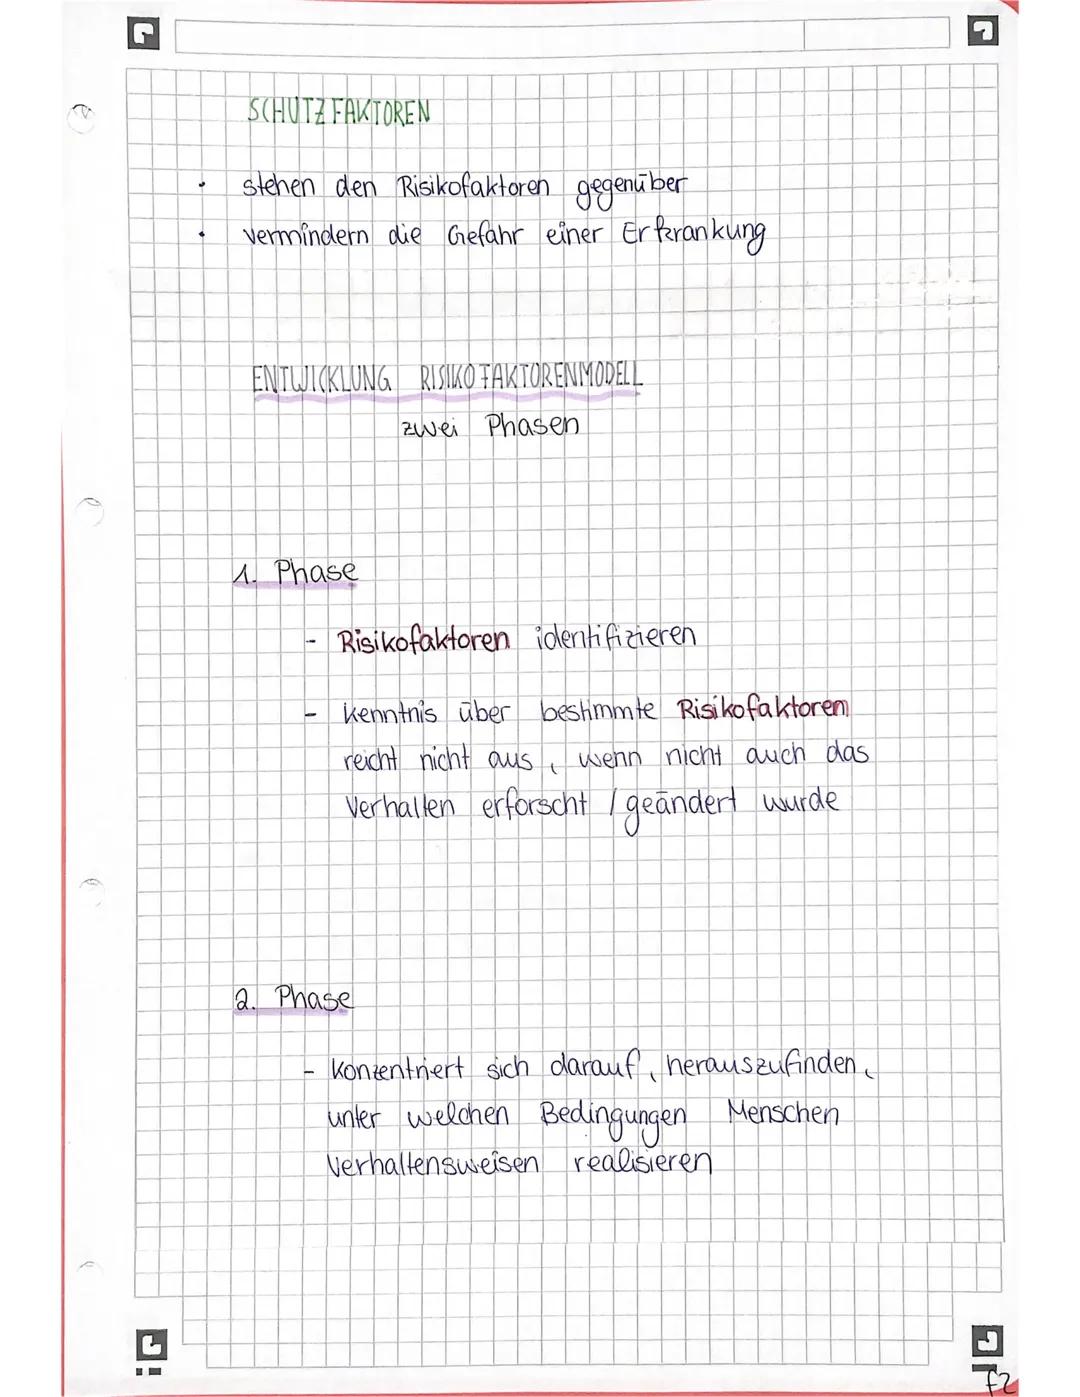 SCHUTZFAKTOREN
• stehen den Risikofaktoren gegenüber
• vermindern die Gefahr einer Erkrankung
ENTWICKLUNG RISIKOFAKTORENMODELL
zwei Phasen
1. Phase
- Risikofaktoren identifizieren
- Kenntnis über bestimmte Risikofaktoren
reicht nicht aus, wenn nicht auch das
Verhalten erforscht / geändert wurde
2. Phase
- Konzentriert sich darauf, herauszufinden,
unter welchen Bedingungen Menschen
Verhaltensweisen realisieren
f2